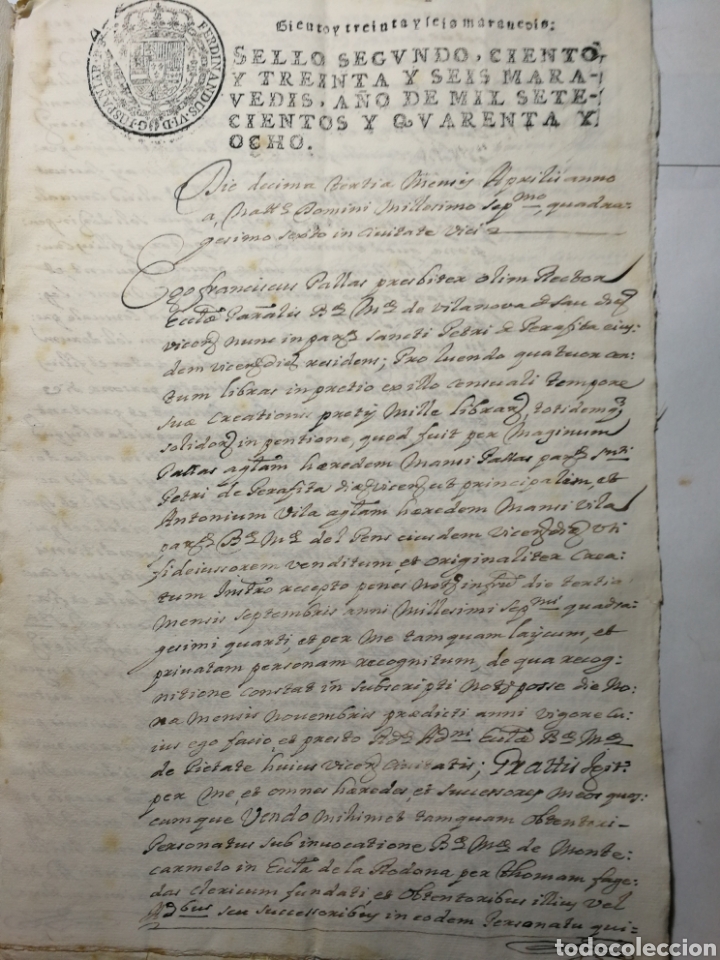 FERDINANDUS VI D G HISPANIAR
Ciento y treinta y seis maravedis:
SELLO SEGVNDO, CIENTO
Y TREINTA Y SEIS MARA-
VEDIS, AÑO DE MIL SETE-
CIENTOS Y QVARENTA Y
OCHO.
Die decima tertia Mensis Aprilis anno
a Natte Domini Millesimo Sepmo quadra-
gesimo sexto in Civitate Vici
Ego Franciscus Pallas presbiter olim Rector
Eccłæ Par̃alis Bæ Mæ de Vilanova de Sau diæ
Vicen nunc in par Sancti Petri de Perafita eius-
dem Vicen diæ residens; Pro luendo quatuor cen-
tum libras in pretio ex illo censuali tempore
suæ Creationis pretij Mille librar, totidemq
solidor in pentione, quod fuit per Maginum
Pallas agtam hæredem Mansi Pallas par Sniti
Petri de Perafita diæ Vicen ut principalem, et
Antonium Vila agtam hæredem Mansi Vila
par Bæ Mæ del Pens eiusdem Vicen diæ uti
fideiussorem venditum et originaliter Crea-
tum Instro recepto penes Not infrm die tertio
Mensis Septembris anni Millesimi Sepmi quadra-
gesimi quarti, et per me tamquam laycum, et
privatam personam recognitum, de qua recog-
nitione constat in subscripti Not posse die No-
na Mensis Novembris prædicti anni vigore cu-
ius ego facio, et presto Rdæ Admi Eccłæ Bæ Mæ
de Pietate huius Vicen Civitatis; Grattis &gitr
per me, et omnes hæredes, et successores Meos quos-
cumque Vendo mihimet tamquam obtentori
Personatus sub invocatione Bæ Mæ de Monte-
carmelo in Eccła de la Rodona per Thomam Fage-
das clericum fundati, et obtentoribus illius vel
Rdbus seu successoribus in eodem Personatu qui-
todocoleccion